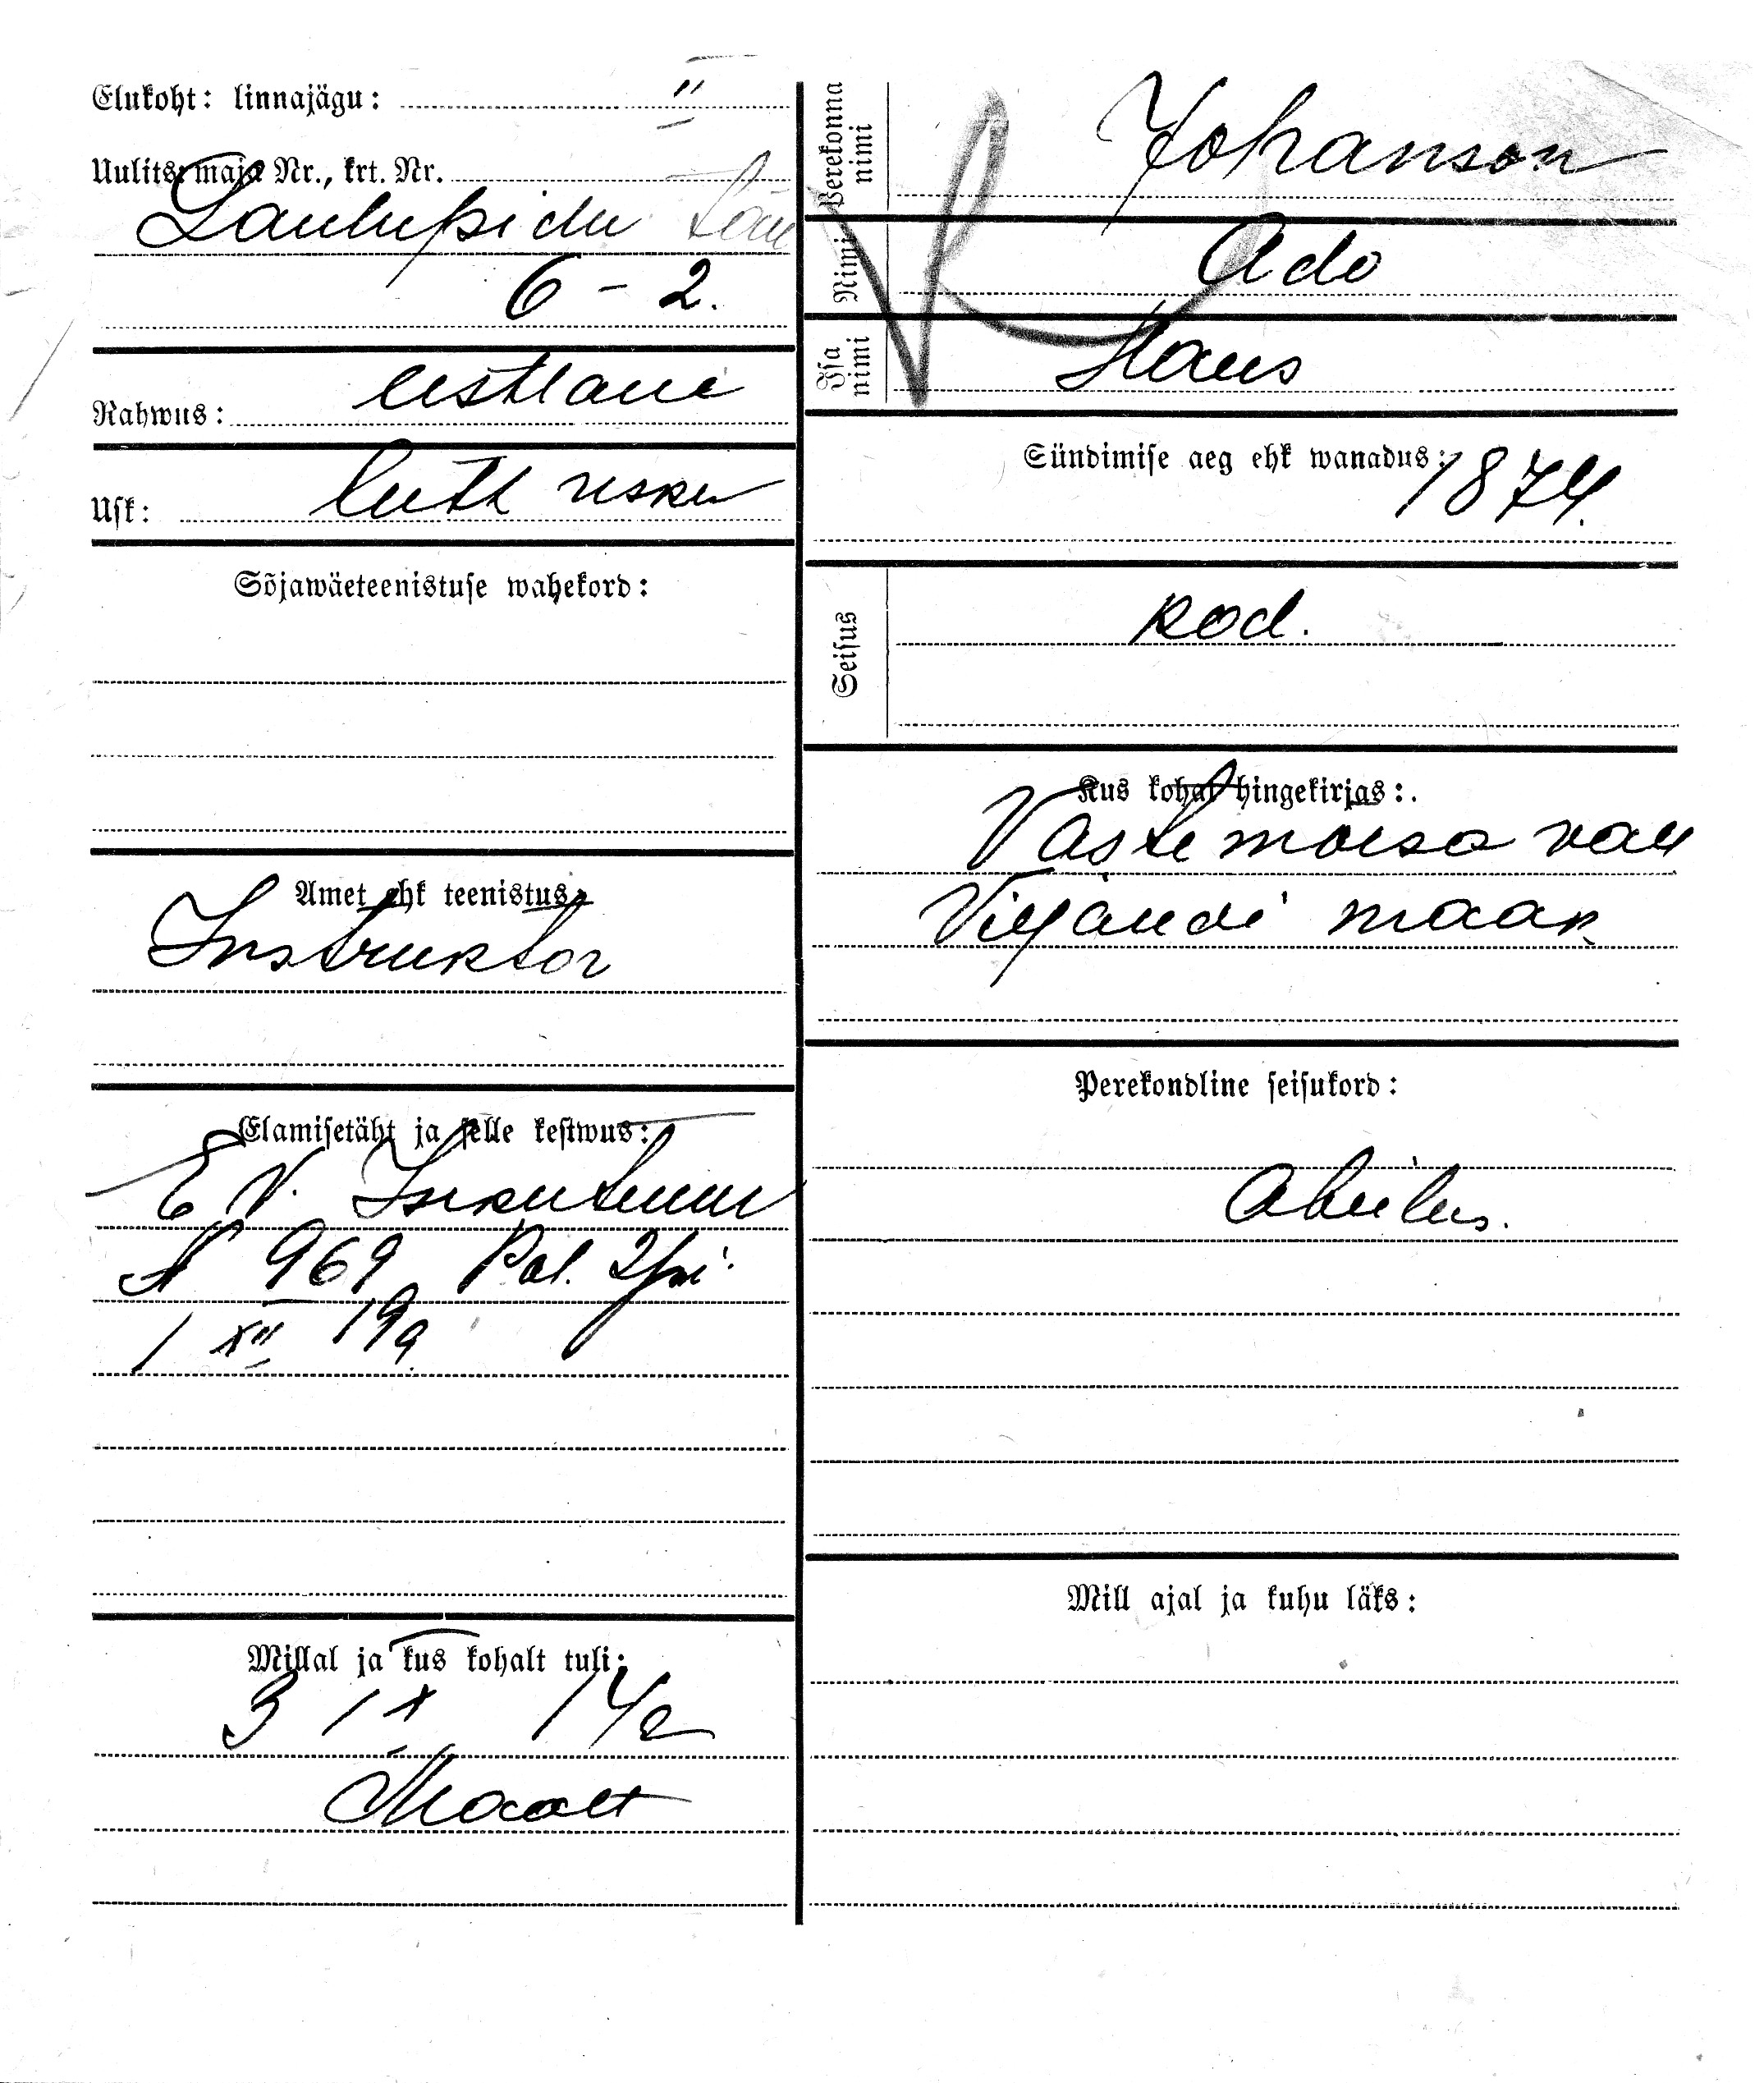 Elukoht: linnajägu: II
Uulits, maja Nr., krt. Nr.
Laulupidu tän
6 - 2.
Rahwus: eestlane
Usk: luth usku
Sõjawäeteenistuse wahekord:
Amet ehk teenistus:
Instruktor
Elamisetäht ja selle kestwus:
E V. Isikutunn
N 969 Pol. 2 jsk.
1 XII 19 a
Millal ja kus kohalt tuli:
3 IX 14 a
Maalt
Perekonna nimi Johanson
Nimi Ado
Isa nimi Hans
Sündimise aeg ehk wanadus: 1874.
Seisus kod.
Kus kohal hingekirjas:
Vastemoisa vall
Viljandi maak
Perekondline seisukord:
Abielus.
Mill ajal ja kuhu läks: